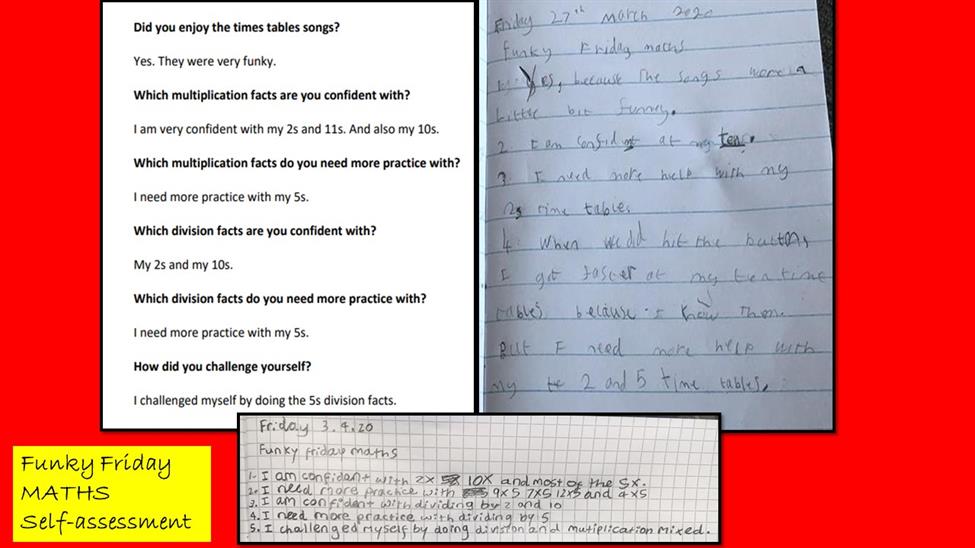 Did you enjoy the times tables songs?
Yes. They were very funky.
Which multiplication facts are you confident with?
I am very confident with my 2s and 11s. And also my 10s.
Which multiplication facts do you need more practice with?
I need more practice with my 5s.
Which division facts are you confident with?
My 2s and my 10s.
Which division facts do you need more practice with?
I need more practice with my 5s.
How did you challenge yourself?
I challenged myself by doing the 5s division facts.
Friday 27th March 2020
Funky Friday maths
Yes, because The songs were a
Little bit funny.
2. I am confident at my tens.
3. I need more help with my
2s time tables
4. When we did hit the button,
I got faster at my ten time
tables because I know Them.
But I need more help with
my 2 and 5 time tables.
Friday 3.4.20
Funky friday maths
1. I am confidant with 2x 10x and most of the 5x.
2. I need more practice with 9x5 7x5 12x5 and 4x5
3. I am confident with dividing by 2 and 10
4. I need more practice with dividing by 5
5. I challenged myself by doing division and mutiplication mixed.
Funky Friday
MATHS
Self-assessment